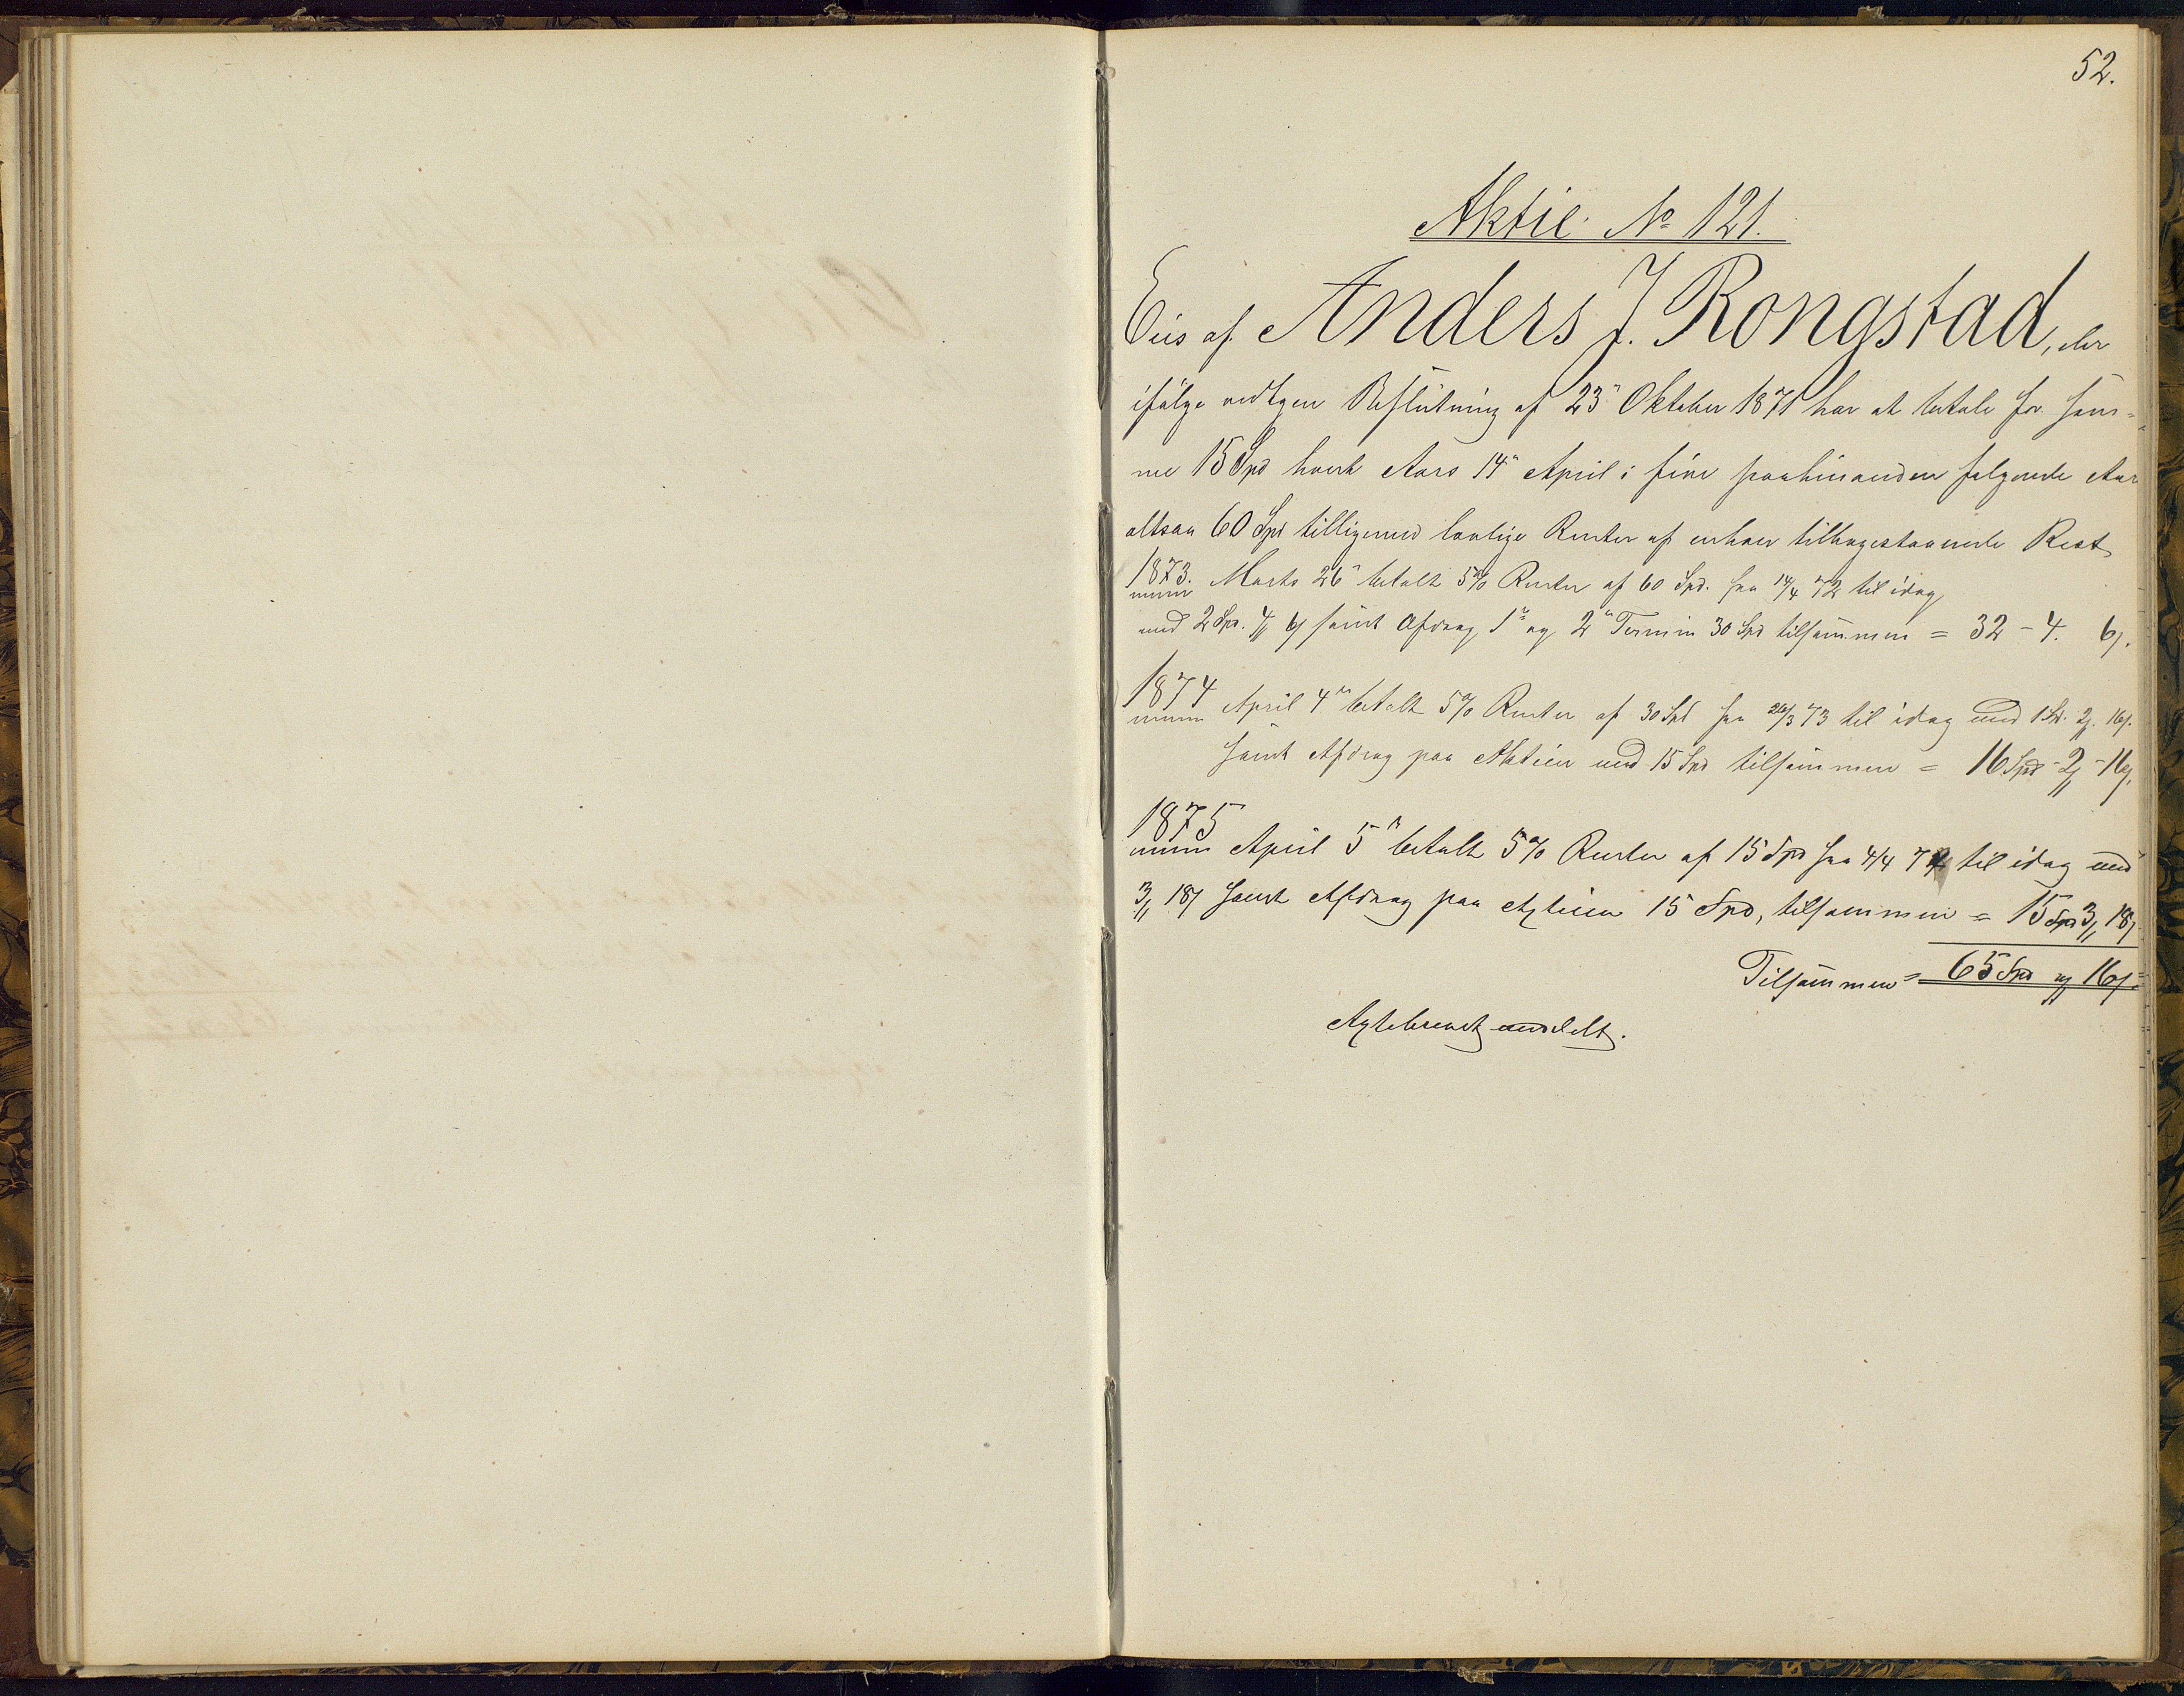 52.
Aktie No 121.
Eies af Anders J. Rongstad, der
ifølge vedtagen Beslutning af 23de Oktober 1871 har at betale for sam=
me 15 Spd hvert Aars 14de April i fire paahinanden følgende Aar
altsaa 60 Spd tilligemed lovlige Renter af enhver tilbagestaaende Rest
1873. Marts 26de betalt 5% Renter af 60 Spd. fra 14/4 72 til idag
med 2 Spd. 4 6 samt Afdrag 1ste og 2den Termin 30 Spd tilsammen = 32 - 4. 6.
1874 April 4de betalt 5% Renter af 30 Spd fra 26/3 73 til idag med 1 Sp. 2. 16.
samt Afdrag paa Aktien med 15 Spd tilsammen = 16 Spd - 2 - 16.
1875 April 5te betalt 5% Renter af 15 Spd fra 4/4 74 til idag med
3 18 samt Afdrag paa Actien 15 Spd, tilsammen = 15 Spd 3, 18
Tilsammen = 65 Spd og 16.
Agtebrevet meddelt.